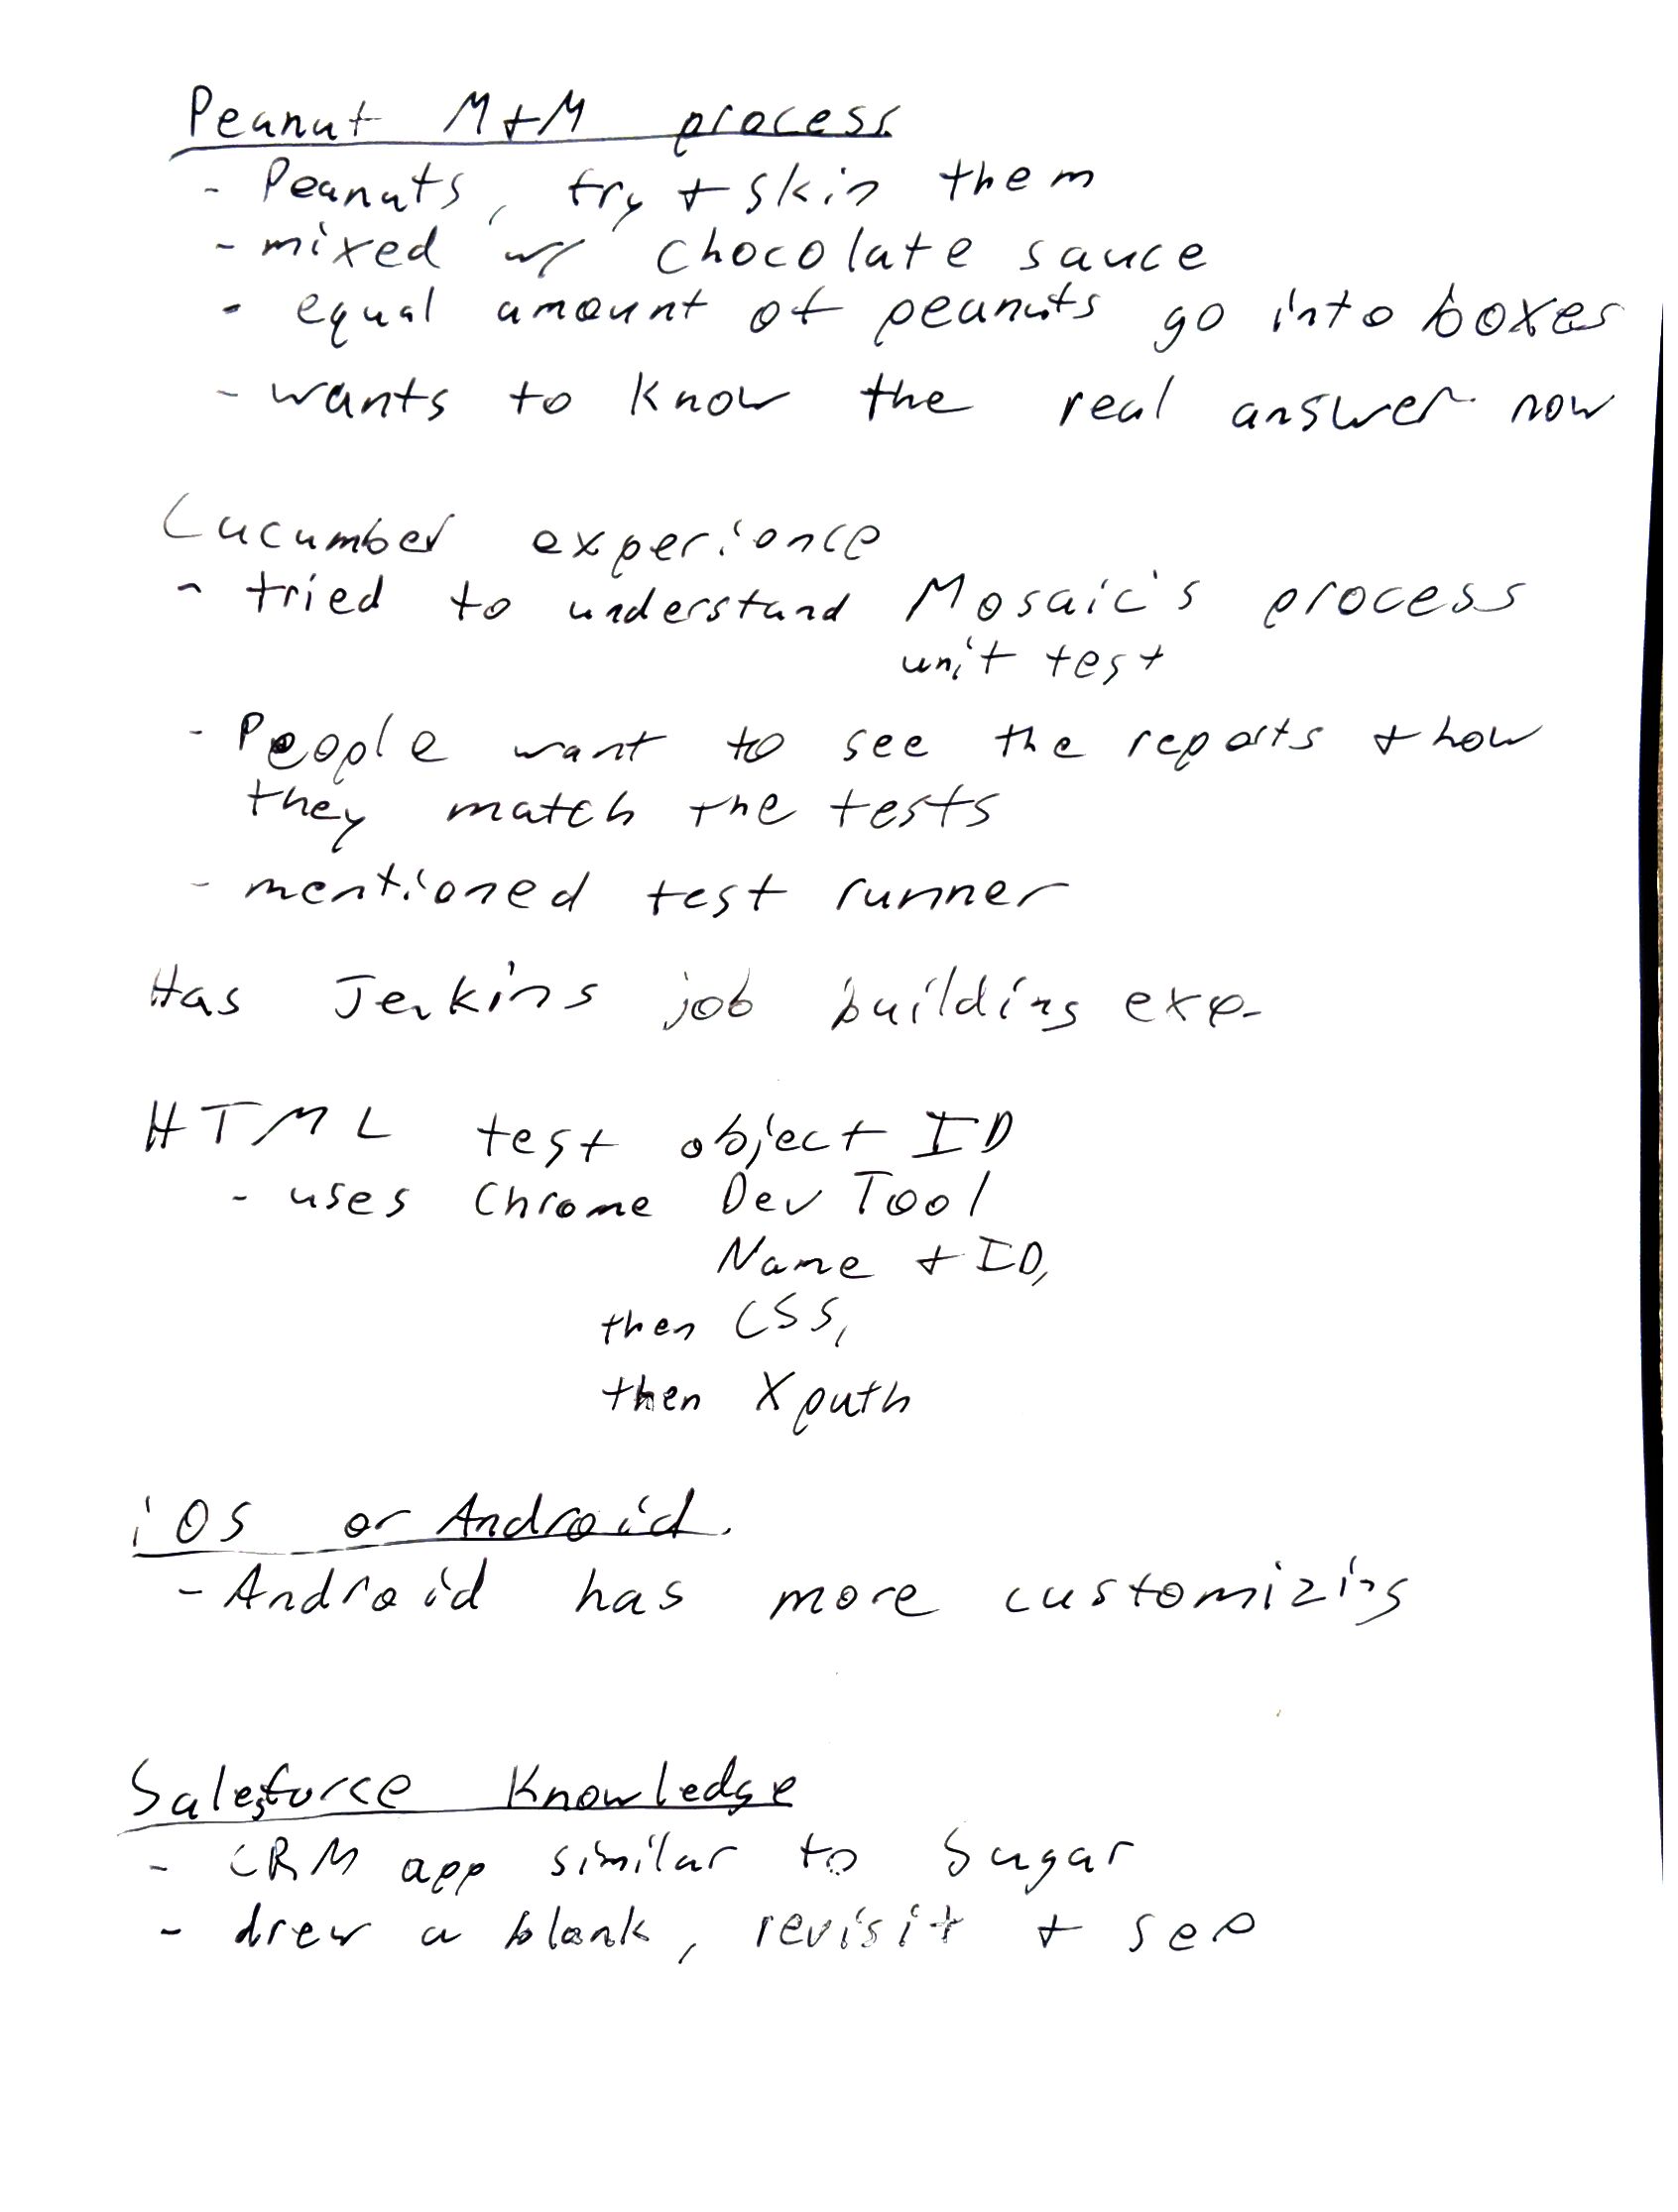 Peanut M+M process
- Peanuts, try + skin them
- mixed w/ chocolate sauce
- equal amount of peanuts go into boxes
- wants to know the real answer now
Cucumber experience
- tried to understand Mosaic's process
unit test
- People want to see the reports + how
they match the tests
- mentioned test runner
Has Jenkins job building exp.
HTML test object ID
- uses Chrome Dev Tool
Name + ID,
then CSS,
then Xpath
iOS or Android.
- Android has more customizing
Salesforce Knowledge
- CRM app similar to Sugar
- drew a blank, revisit + see